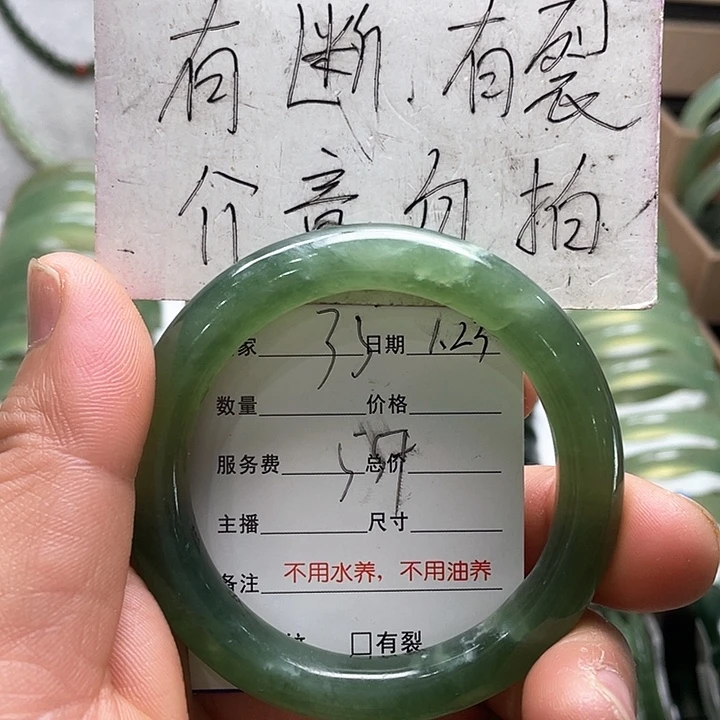 有断.有裂
介意勿拍
家 35 日期 1.25
数量 价格
服务费 总价
主播 尺寸
备注 不用水养，不用油养
□有裂